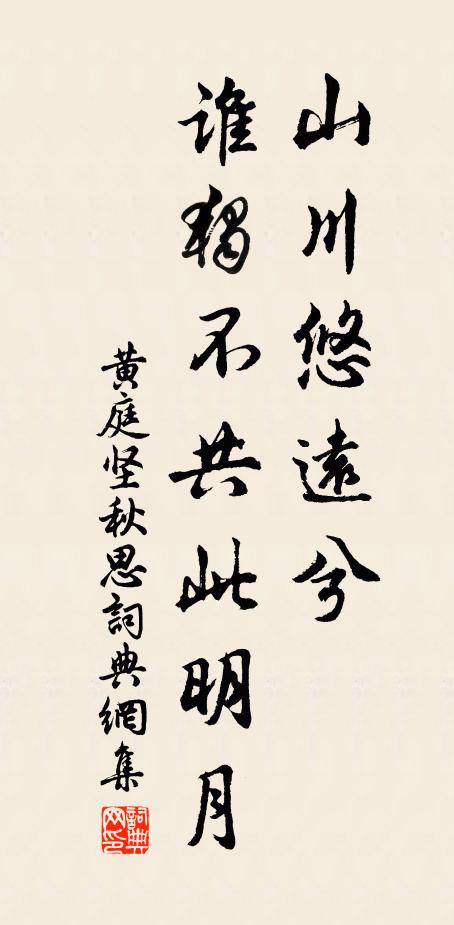 山川悠遠兮
誰獨不共此明月
黃庭坚秋思詞典網集
詞典網印